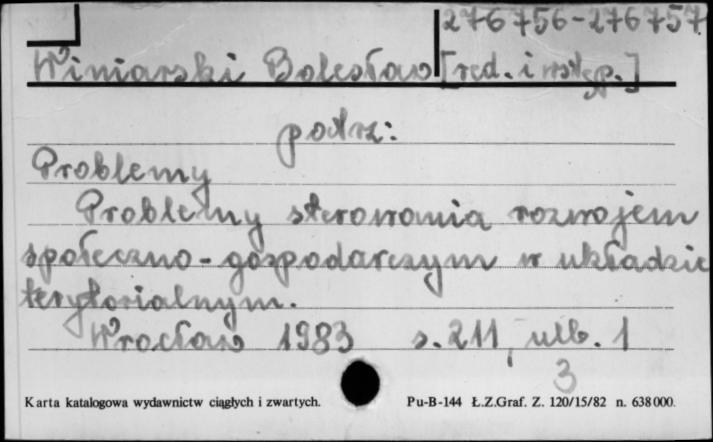 276756-276757
Winiarski Bolesław [red. i wstęp.]
patrz:
Problemy
Problemy sterowania rozwojem
społeczno-gospodarczym w układzie
terytorialnym.
Wrocław 1983 s. 211, ulb. 1
3
Karta katalogowa wydawnictw ciągłych i zwartych. Pu-B-144 Ł.Z.Graf. Z. 120/15/82 n. 638000.